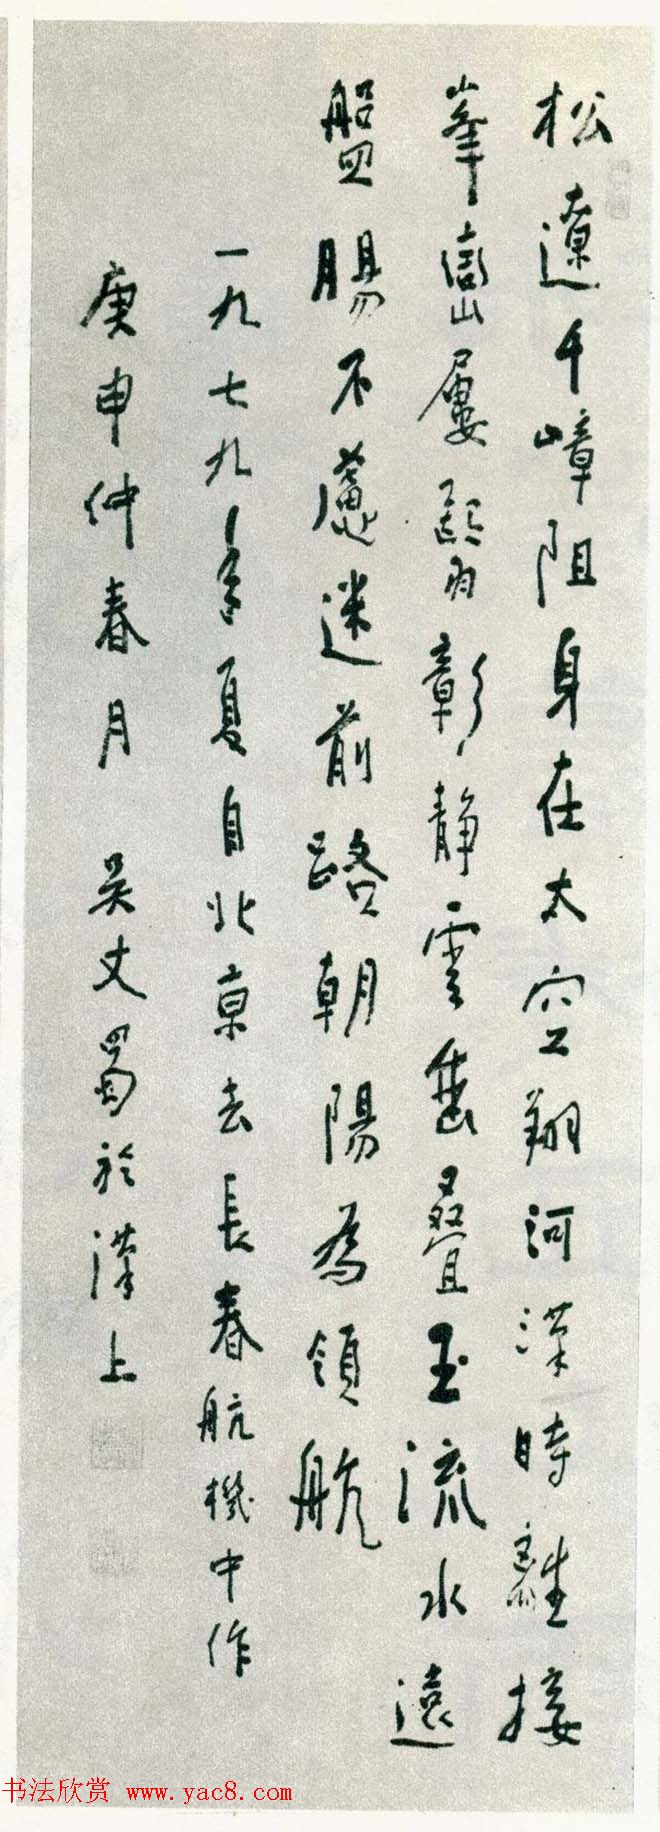 松遼千嶂阻身在太空翔河漢時離接
峯巒屢翳彰靜雲舊疊玉流水遠
盤腸不慮迷前路朝陽為領航
一九七九年夏自北京去長春航機中作
庚申仲春月 吳丈蜀於漢上
书法欣赏 www.yac8.com